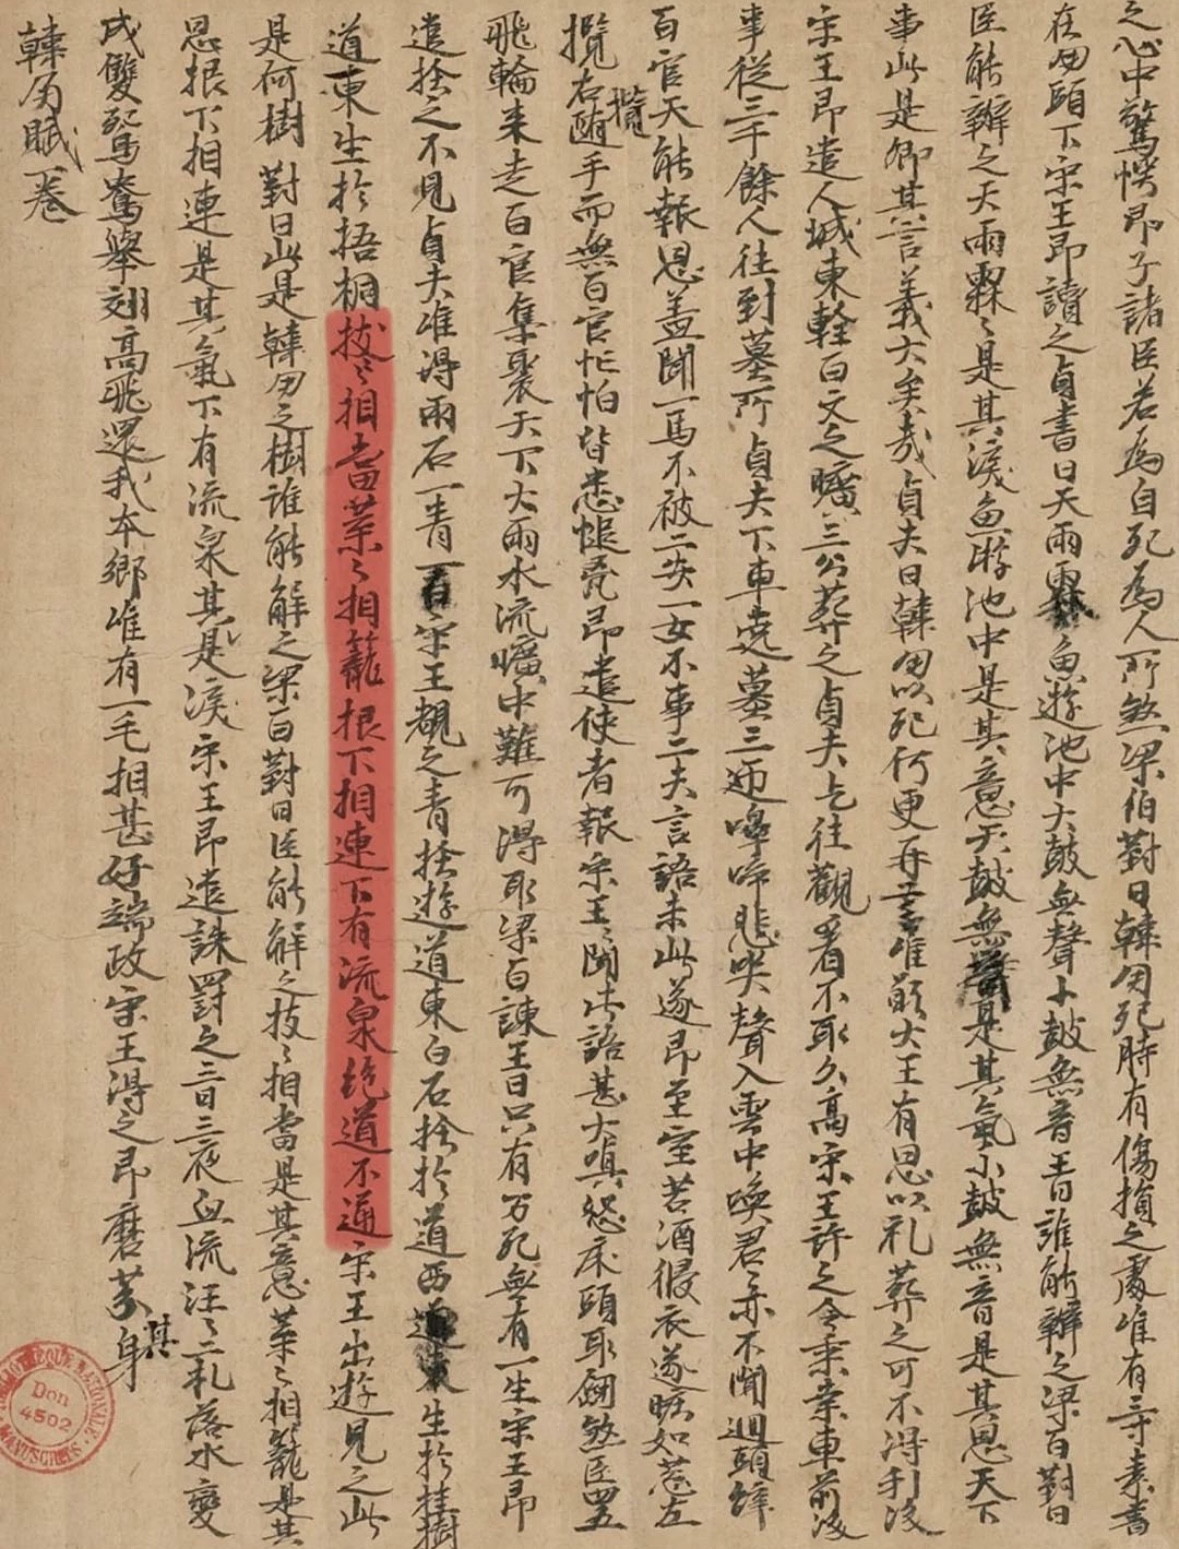 之心中驚愕即了諸臣若為自死為人所煞梁伯對曰韓朋死時有傷損之處唯有三寸素書
在朋頭下宋王即讀之貞書曰天雨霖魚遊池中大鼓無聲小鼓無音王曰誰能辨之梁百對曰
臣能辨之天雨霖〻是其淚魚遊池中是其意天鼓無聲是其氣小鼓無音是其思天下
事此是卿其言義大矣哉貞夫曰韓朋以死何更再言唯願大王有恩以礼葬之可不得利後
宋王即遣人城東輇百丈之曠三公葬之貞夫乞往觀看不取久高宋王許之令乘素車前後
事從三千餘人往到墓所貞夫下車遶墓三迊嘷啼悲哭聲入雲中喚君〻亦不聞迴頭辞
百官天能報恩盖聞一馬不被二安一女不事二夫言語未此遂即至室苦酒侵衣遂脆如葱左
攬右攬随手而無百官忙怕皆悉搥胷即遣使者報宋王〻聞此語甚大嗔怒床頭取劒煞臣四五
飛輪来走百官集聚天下大雨水流曠中難可得取梁百諫王曰只有万死無有一生宋王即
遣捨之不見貞夫唯得兩石一青一白宋王覩之青捨遊道東白石捨於道西道東生於桂樹
道東生於梧桐枝〻相當葉〻相籠根下相連下有流泉絶道不通宋王出遊見之此
是何樹對曰此是韓朋之樹誰能解之梁百對曰臣能解之枝〻相當是其意葉〻相籠是其
恩根下相連是其氣下有流泉其是淚宋王即遣誅罸之三日三夜血流汪〻二札落水變
成雙鴛鴦舉翅高飛還我本鄉唯有一毛相甚好端政宋王得之即磨芬其身
韓朋賦一卷
BIBLIOTHÈQUE NATIONALE
Don
4502
MANUSCRITS